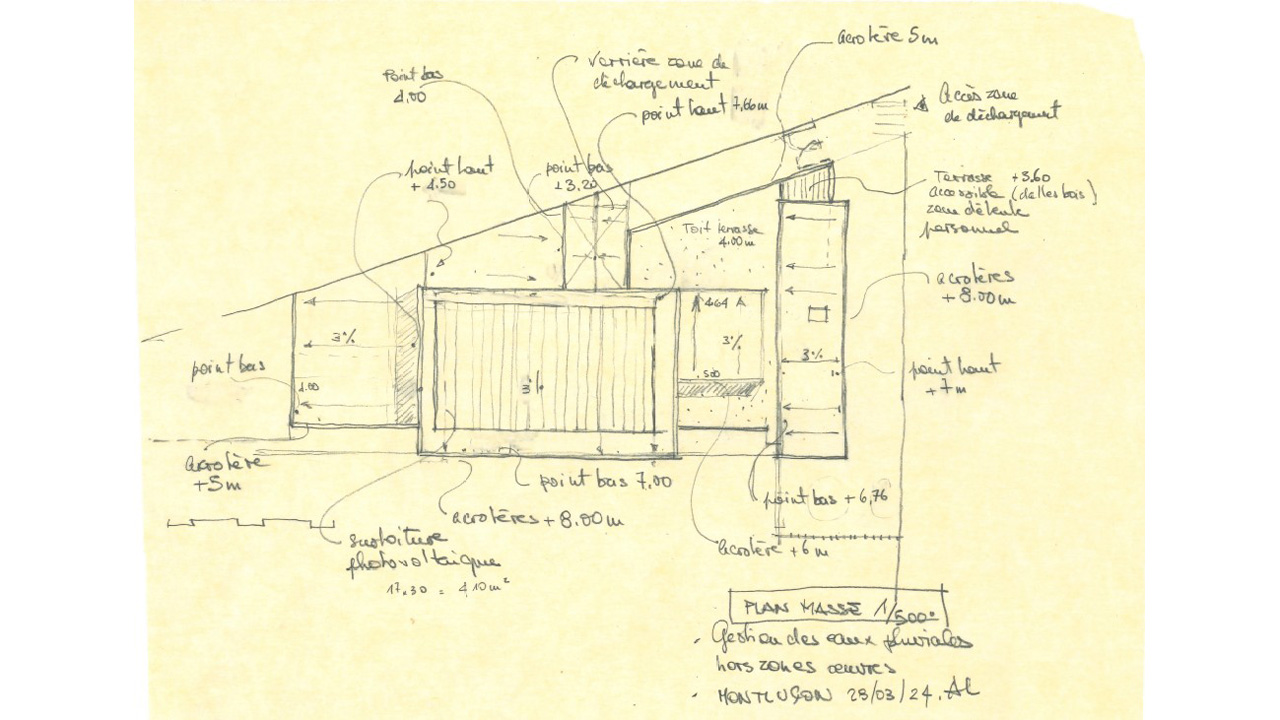 acrotère 5m
Point bas
4.00
Verrière zone de
déchargement
point haut 7,66m
Accès zone
de déchargement
point haut
+ 4.50
point bas
+3.20
Terrasse +3.60
accessible (dalles bois)
zone détente
personnel
Toit terrasse
4.00m
acrotères
+ 8.00m
464
3%
3%
500
3%
3%
point bas
4.00
point haut
+ 7m
acrotère
+5m
point bas 7,00
point bas + 6,76
acrotères + 8.00m
surtoiture
photovoltaïque
17x30 = 410m²
acrotère +6m
PLAN MASSE 1/500°
- Gestion des eaux pluviales
hors zones œuvres
- MONTLUÇON 28/03/24. AL